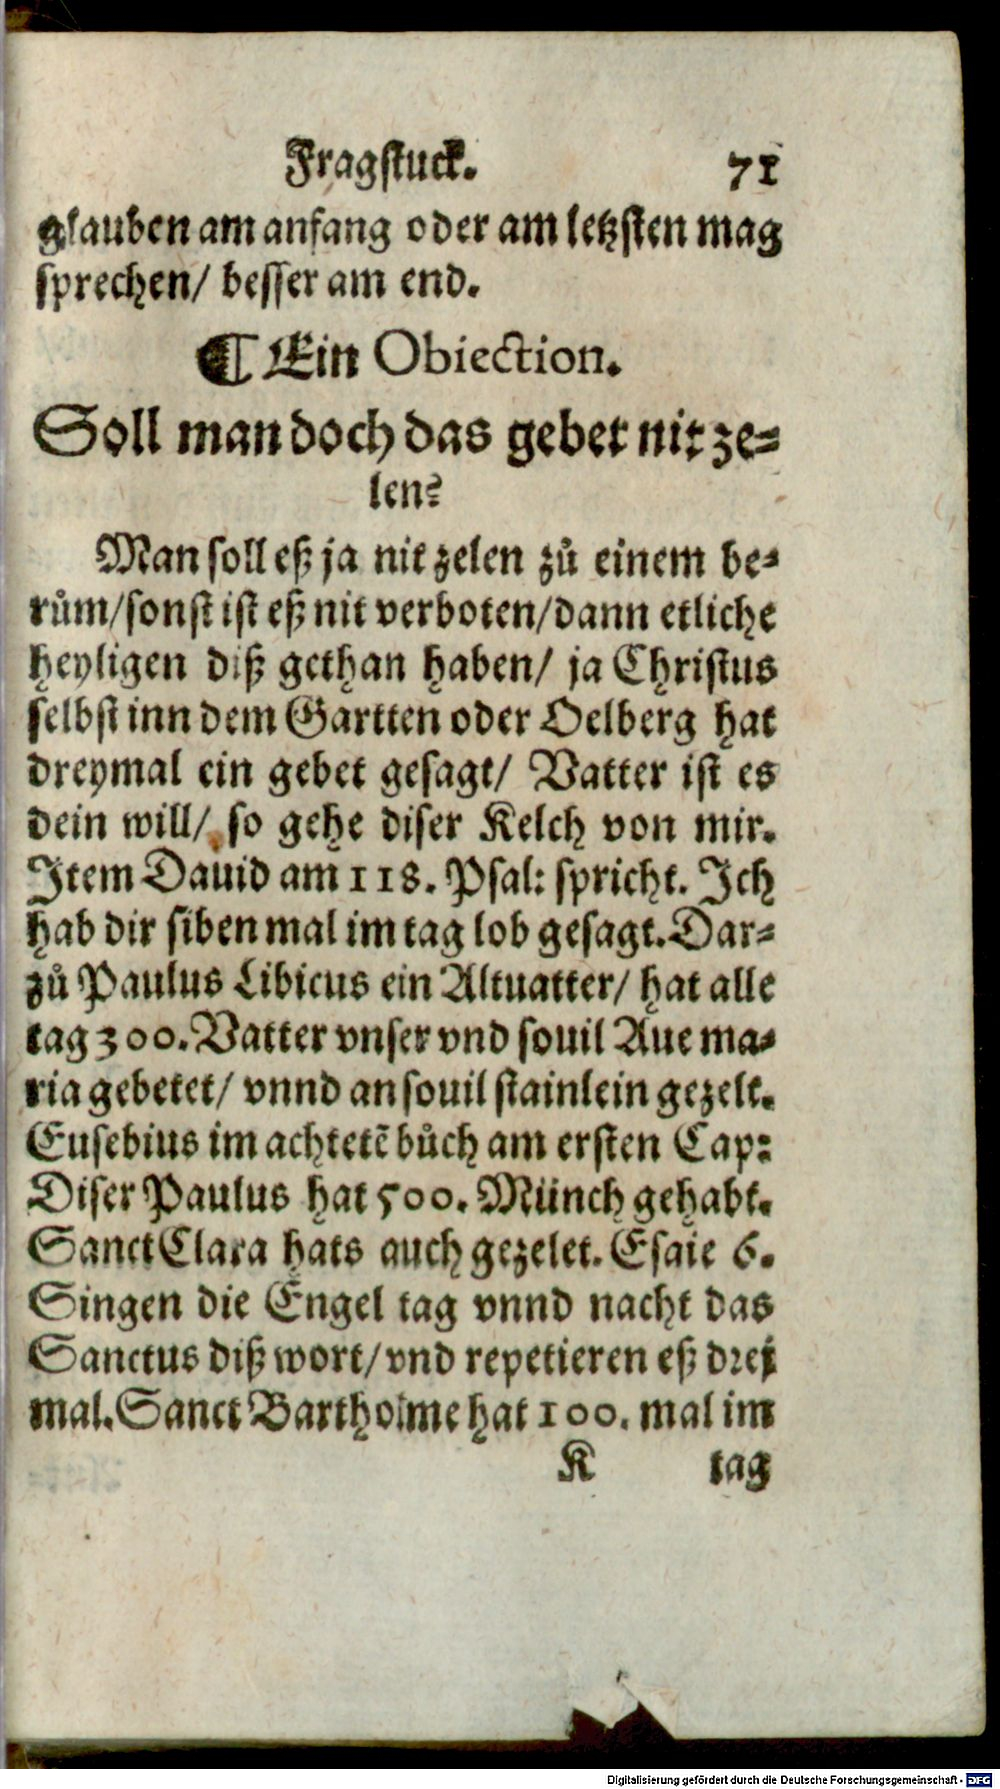 Fragstuck. 71
glauben am anfang oder am letzsten mag
sprechen/ besser am end.
¶ Ein Obiection.
Soll man doch das gebet nit ze-
len?
Man soll eß ja nit zelen zů einem be-
rům/sonst ist eß nit verboten/dann etliche
heyligen diß gethan haben/ ja Christus
selbst inn dem Gartten oder Oelberg hat
dreymal ein gebet gesagt/ Vatter ist es
dein will/ so gehe diser Kelch von mir.
Item Dauid am 118. Psal: spricht. Ich
hab dir siben mal im tag lob gesagt. Dar-
zů Paulus Libicus ein Altuatter/ hat alle
tag 300. Vatter vnser vnd souil Aue ma-
ria gebetet/ vnnd an souil stainlein gezelt.
Eusebius im achtetē bůch am ersten Cap:
Diser Paulus hat 500. Münch gehabt.
Sanct Clara hats auch gezelet. Esaie 6.
Singen die Engel tag vnnd nacht das
Sanctus diß wort/ vnd repetieren eß drei
mal. Sanct Bartholme hat 100. mal im
K tag
Digitalisierung gefördert durch die Deutsche Forschungsgemeinschaft - DFG